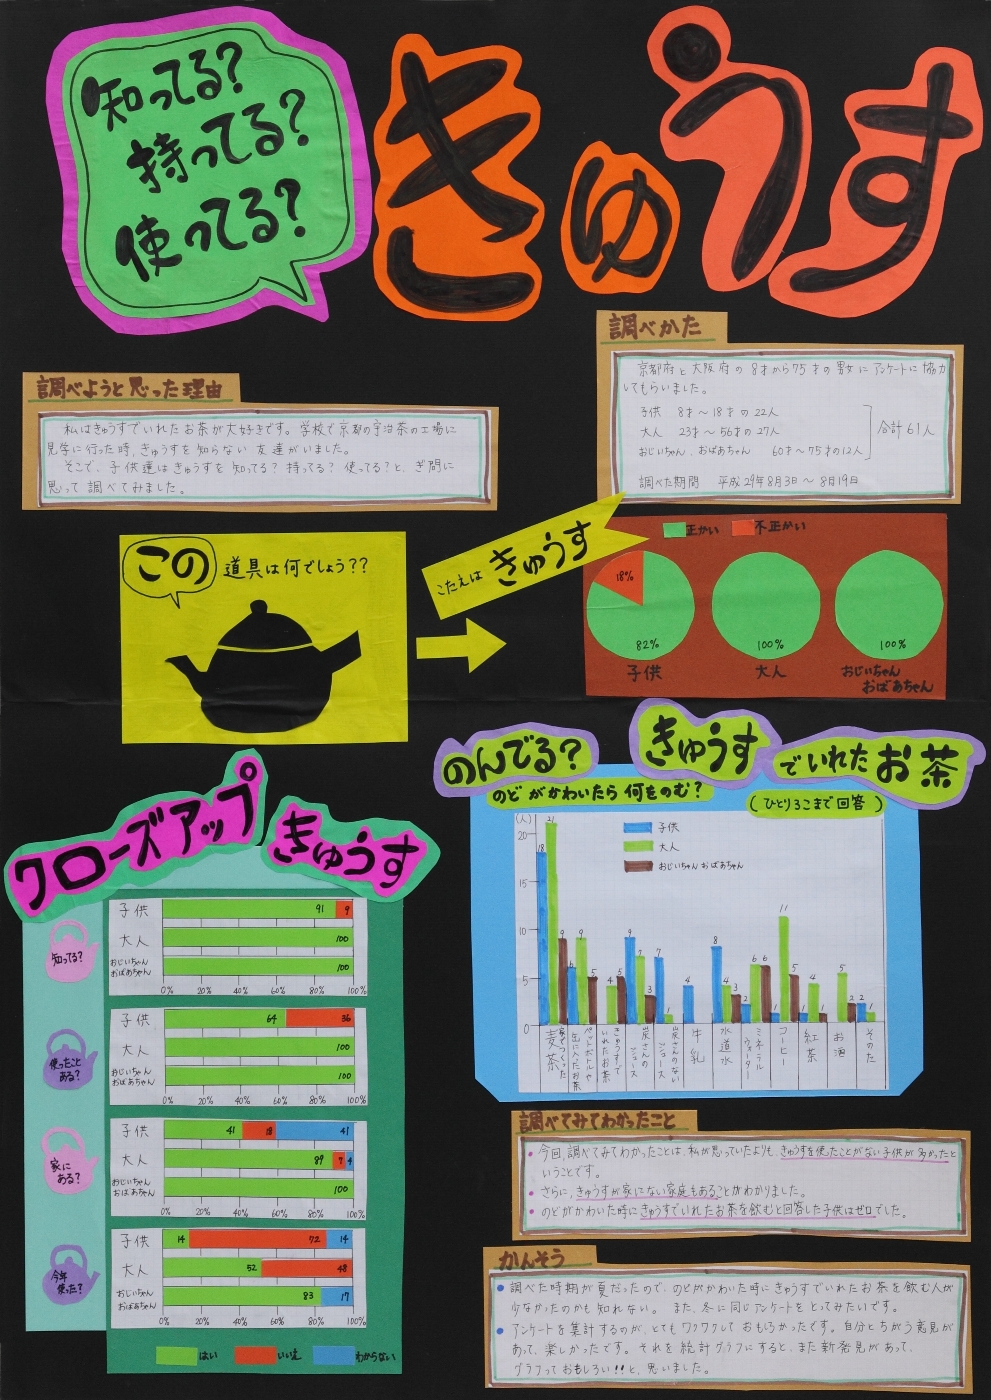 知ってる?
持ってる?
使ってる?
きゅうす
調べようと思った理由
私はきゅうすでいれたお茶が大好きです。学校で京都の宇治茶の工場に
見学に行った時、きゅうすを知らない友達がいました。
そこで、子供達はきゅうすを知ってる?持ってる?使ってる?と、ぎ問に
思って調べてみました。
調べかた
京都府と大阪府の8才から75才の男女にアンケートに協力
してもらいました。
子供 8才〜18才の22人
大人 23才〜56才の27人
おじいちゃん、おばあちゃん 60才〜75才の12人
合計61人
調べた期間 平成29年8月3日〜8月19日
この道具は何でしょう??
こたえはきゅうす
正かい 不正かい
18%
82%
100%
100%
子供 大人 おじいちゃん
おばあちゃん
クローズアップきゅうす
知ってる?
子供 91 9
大人 100
おじいちゃん
おばあちゃん 100
0% 20% 40% 60% 80% 100%
使ったこと
ある?
子供 64 36
大人 100
おじいちゃん
おばあちゃん 100
0% 20% 40% 60% 80% 100%
家に
ある?
子供 41 18 41
大人 89 7 4
おじいちゃん
おばあちゃん 100
0% 20% 40% 60% 80% 100%
今年
使った?
子供 14 72 14
大人 52 48
おじいちゃん
おばあちゃん 83 17
0% 20% 40% 60% 80% 100%
はい いいえ わからない
のんでる?きゅうすでいれたお茶
のどがかわいたら何をのむ?
(ひとり3こまで回答)
(人)
子供
大人
おじいちゃんおばあちゃん
20
15
10
5
0
18 21 9
6 9 5
4 5
9 7 3
7 1
4
8 4 3
2 6 6
1 11 5
1 4 1
5 2
2 1
家でつくった
麦茶
ペットボトルや
缶に入ったお茶
きゅうすで
いれたお茶
炭さんの
ジュース
炭さんのない
ジュース
牛乳
水道水
ミネラル
ウォーター
コーヒー
紅茶
お酒
そのた
調べてみてわかったこと
• 今回、調べてみてわかったことは、私が思っていたよりも、きゅうすを使ったことがない子供が多かったと
いうことです。
• さらに、きゅうすが家にない家庭もあることがわかりました。
• のどがかわいた時にきゅうすでいれたお茶を飲むと回答した子供はゼロでした。
かんそう
• 調べた時期が夏だったので、のどがかわいた時にきゅうすでいれたお茶を飲む人が
少なかったのかも知れない。また、冬に同じアンケートをとってみたいです。
• アンケートを集計するのが、とてもワクワクしておもしろかったです。自分とちがう意見が
あって、楽しかったです。それを統計グラフにすると、また新発見があって、
グラフっておもしろい!!と、思いました。